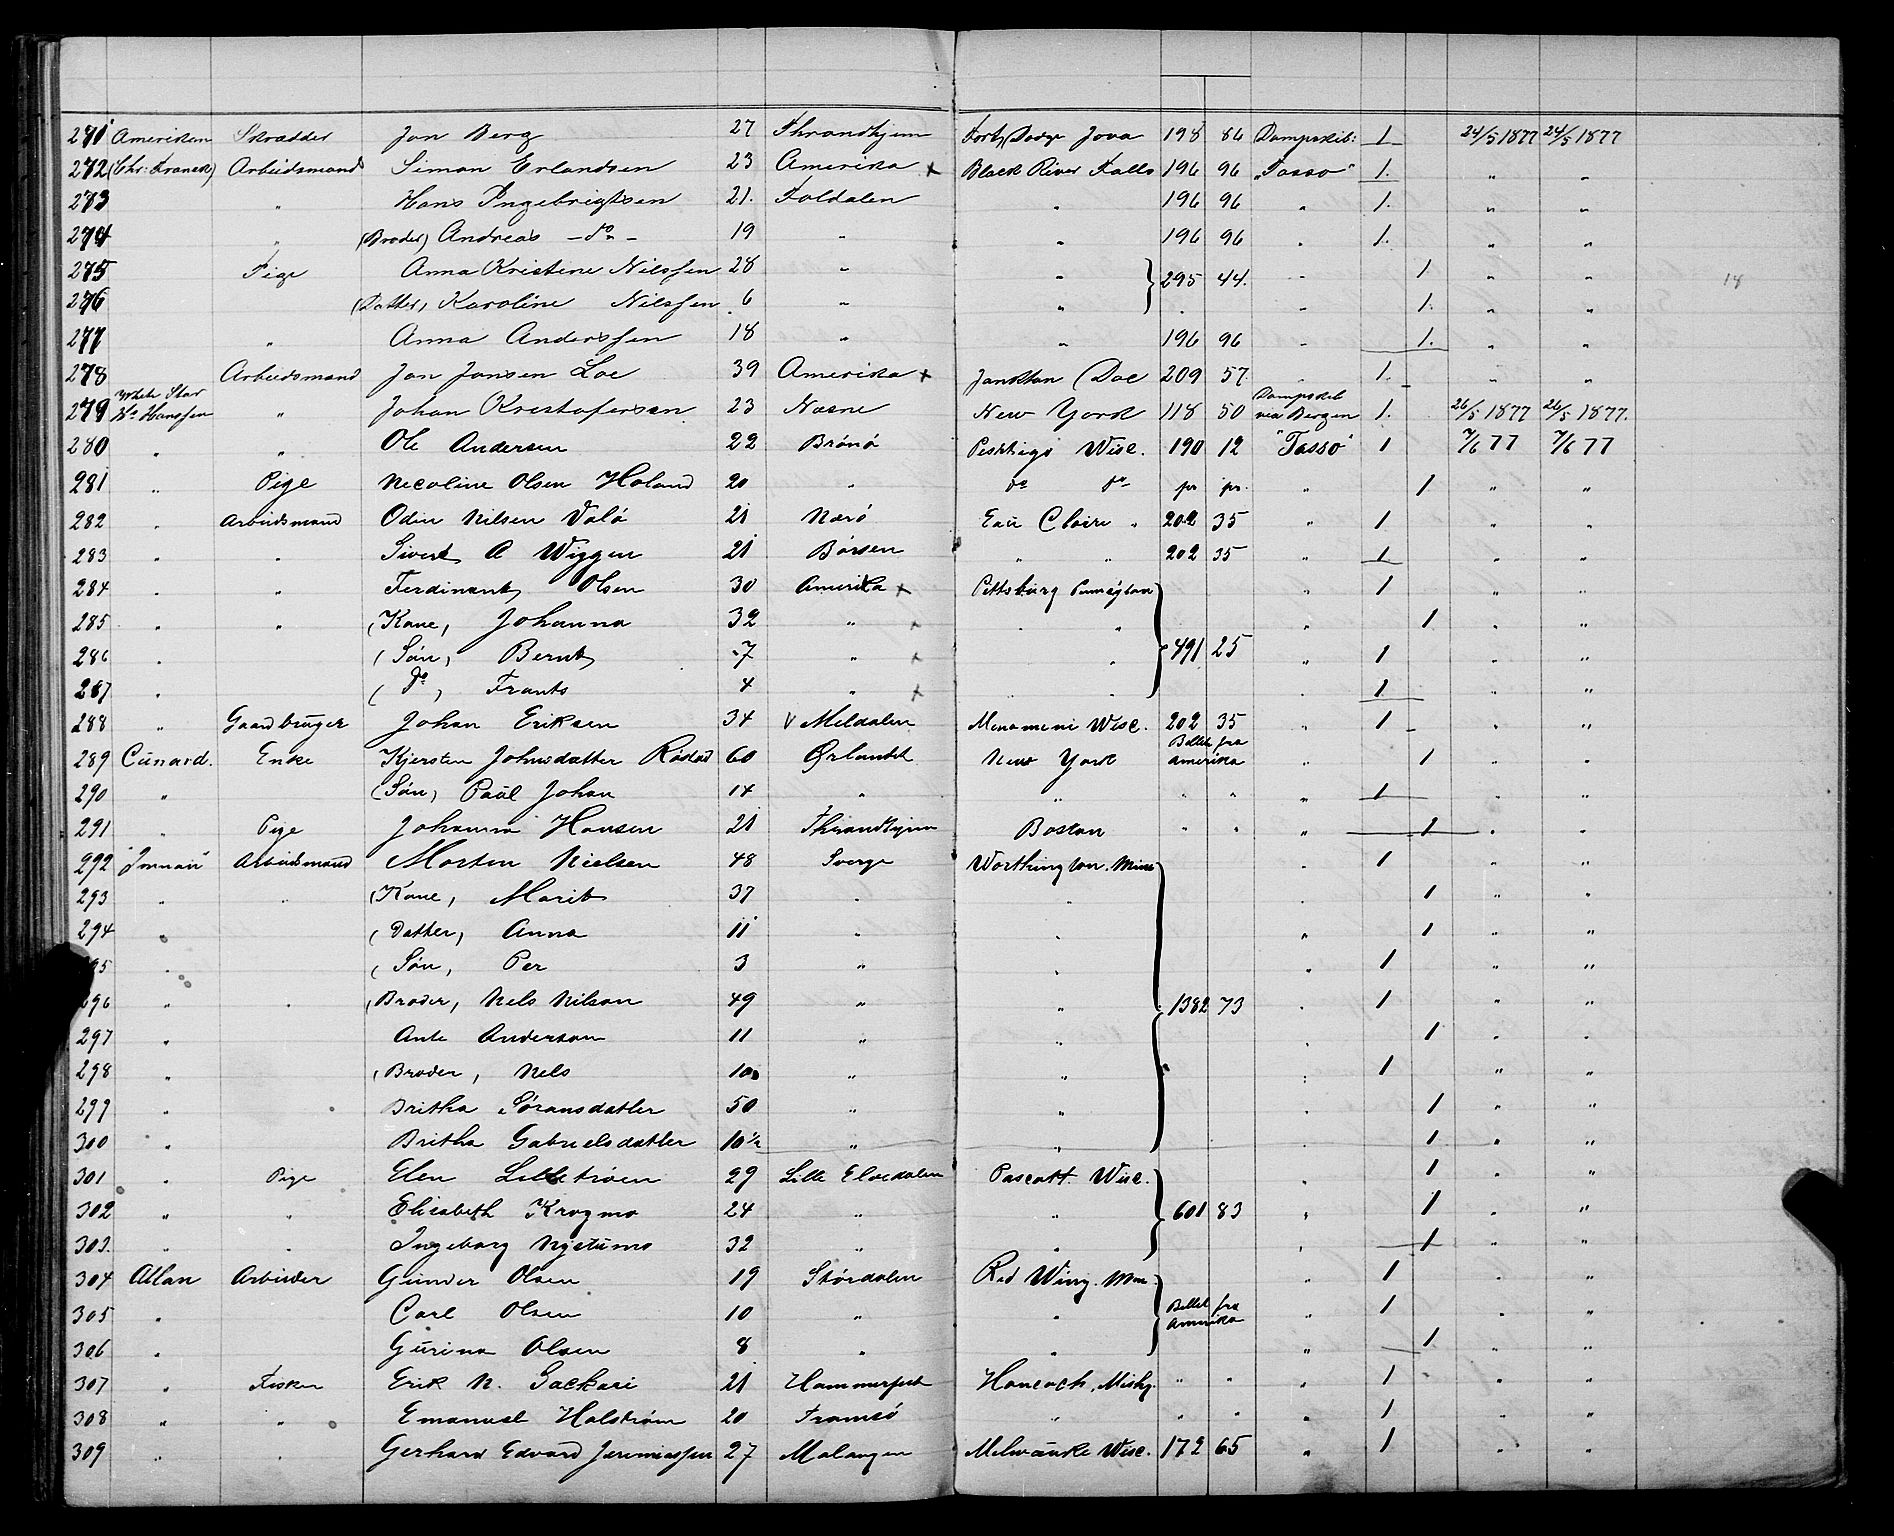 271 Amerikan Skrædder Jon Berg 27 Throndhjem Fort Dodge Jova 198 86 Dampskib: 1 24/5 1877 24/5 1877
272 (Chr: Franck) Arbeidsmand Simon Erlandsen 23 Amerika x Black River Falls 196 96 "Tasso" 1. " "
273 " Hans Ingebrigtsen 21. Foldalen " 196 96 " 1. " "
274 " (Broder) Andreas - do - 19 " " 196 96 " 1. " "
275 Pige Anna Kristine Nilssen 28 " " } 295 44. " 1 " " 18
276 (Datter, Karoline Nilssen 6 " " " 1. " "
277 " Anna Anderssen 18 " " 196 96 " 1. " "
278 Arbeidsmand Jon Jonsen Loe 39 Amerika x Jankton Dac 209 57. " 1. " "
279 White Star Hs Hanssen " Johan Kristofersen 23 Næsne New York 118 50 Dampskib via Bergen 1. 26/5 1877 26/5 1877.
280 " " Ole Andersen 22 Brønø Peshtigo Wisc. 190 12 "Tasso" 1 7/6 77 7/6 77
281 " Pige Necoline Olsen Holand 20 " do do pr pr. " 1 " "
282 " Arbeidsmand Odin Nilsen Valø 21 Nærø Eau Claire " 202 35 " 1 " "
283 " " Sivert A Wiggen 21 Børsen " " 202 35 " 1 " "
284 " " Ferdinant Olsen 30 Amerika x Pittsburg } " 1 " "
285 " " (Kone, Johanna 32 " x " " " 1 " "
286 " (Søn, Bernt 7 " x " 491 25 " 1 " "
287 " ( do, Frants 4 " x " " " 1 " "
288 " Gaardbruger Johan Eriksen 34 V Meldalen Menomeni Wisc. 202 35 " 1 " "
289 Cunard. Enke Kjersten Johnsdatter 60 Ørlandet New York Billet fra Amerika " 1 " "
290 " (Søn, Paul Johan 14 " " " " " 1 " "
291 " Pige Johanna Hansen 21 Throndhjem Boston " " " 1 " "
292 "Inman" Arbeidsmand Morten Nielsen 48 Sverge Worthington. Minn } " 1 " "
293 " " (Kone, Marit 37 " " 1 " "
294 " (Datter, Anna 11 " " " 1 " "
295 " (Søn, Per 3 " " " 1 " "
296 " " (Broder, Nels Nilson 49 " " 1382 73 " 1 " "
297 " Ante Anderson 11 " " " 1 " "
298 " (Broder, Nels 10 " " " 1 " "
299 " Britha Søransdatter 50 " " " 1 " "
300 " Britha Gabrielsdatter 10½ " " " 1 " "
301 " Pige Elen Lillestrøen 29 Lille Elvedalen Pascott. Wisc. } " 1 " "
302 " " Elisabeth Krogmo 24 " " 601 83 " 1 " "
303. " " Ingeborg Nystumo 32 " " " 1 " "
304 Allan Arbeider Gunder Olsen 19 Størdalen Red Wing. Min } " 1 " "
305 " Carl Olsen 10 " " Billet fra Amerika " 1 " "
306 " Gurina Olsen 8 " " " 1 " "
307 " Fisker Erik N. Sackari 21 Hammerfest Hancock, Mishg. " " " 1 " "
308 " " Emanuel Holstrøm 20 Tromsø " " " " 1 " "
309 " " Gerhard Edvard Jeremiassen 27 Malangen Milwauke Wisc. 172 65 " 1 " "